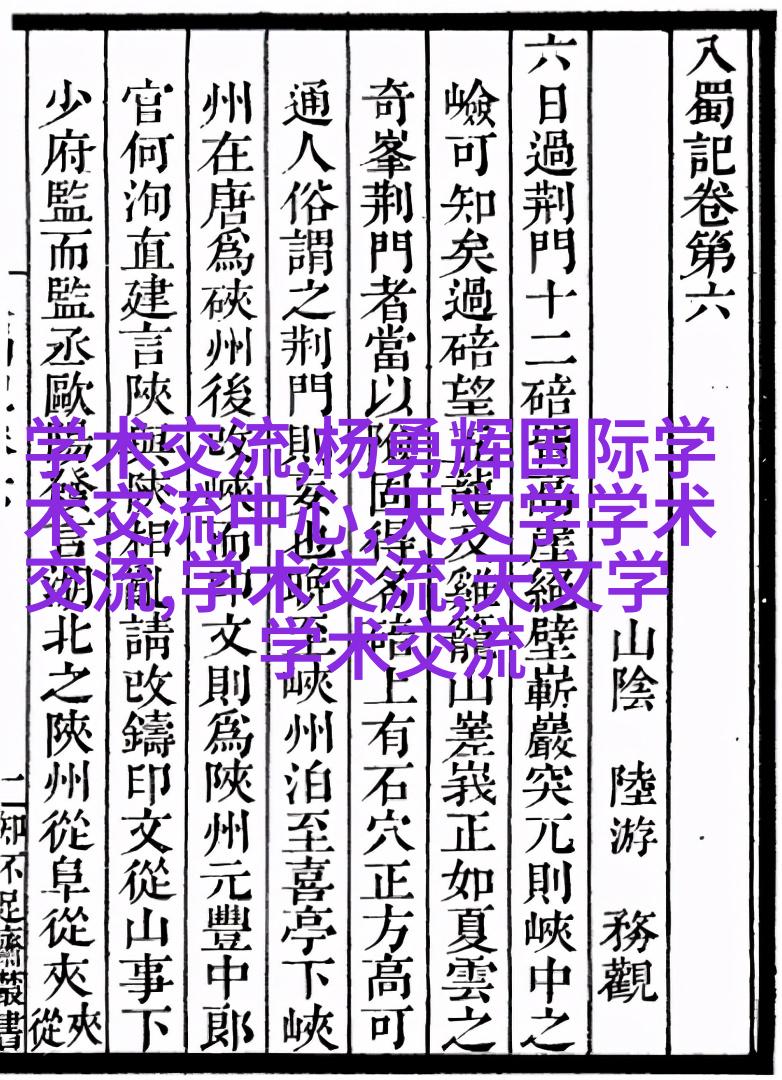 入蜀記卷第六
山陰 陸游 務觀
六日過荆門十二碚皆高崖絕壁嶄巖突兀則峽中之
嶮可知矣過碚望五龍及雞籠山嵳峩正如夏雲之
奇峯荆門者當以險固得名碚上有石穴正方高可
通人俗謂之荆門則妄也晩至峽州泊至喜亭下峽
州在唐爲硤州後改峽而印文則爲陝州元豐中郎
官何洵直建言陝與陝相亂請改鑄印文從山事下
少府監而監丞歐陽發言湖北之陝州從阜從夾夾從
二知不足齋叢書
学术交流,杨勇辉国际学
术交流中心,天文学学术
交流,学术交流,天文学
学术交流